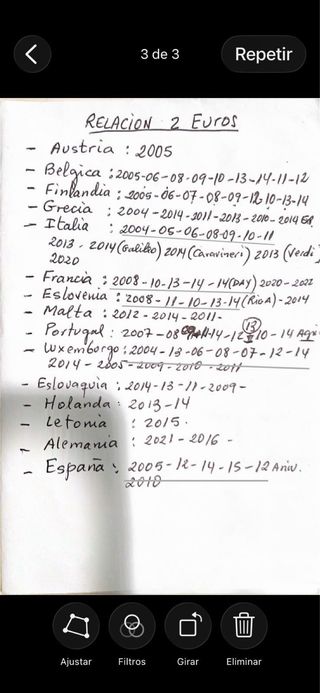 3 de 3
Repetir
RELACION 2 EUROS
- Austria : 2005
- Belgica : 2005-06-08-09-10-13-14-11-12
- Finlandia : 2005-06-07-08-09-12 10-13-14
- Grecia : 2004-2014-2011-2013-2010-2014
- Italia : 2004-05-06-08-09-10-11
2013-2014 (Galileo) 2014 (Caravineri) 2013 (Verdi)
2020
- Francia : 2008-10-13-14-14 (DAY) 2020-2022
- Eslovenia : 2008-11-10-13-14 (RioA)-2014
- Malta : 2012-2014-2011-
- Portugal : 2007-08 14-12 13 10-14
- Luxemborgo : 2004-13-06-08-07-12-14
2014-2005-2009-2010-2011
- Eslovaquia : 2014-13-11-2009-
- Holanda : 2013-14
- Letonia : 2015.
- Alemania : 2021-2016-
- España : 2005-12-14-15-12 Aniv.
2010
Ajustar Filtros Girar Eliminar